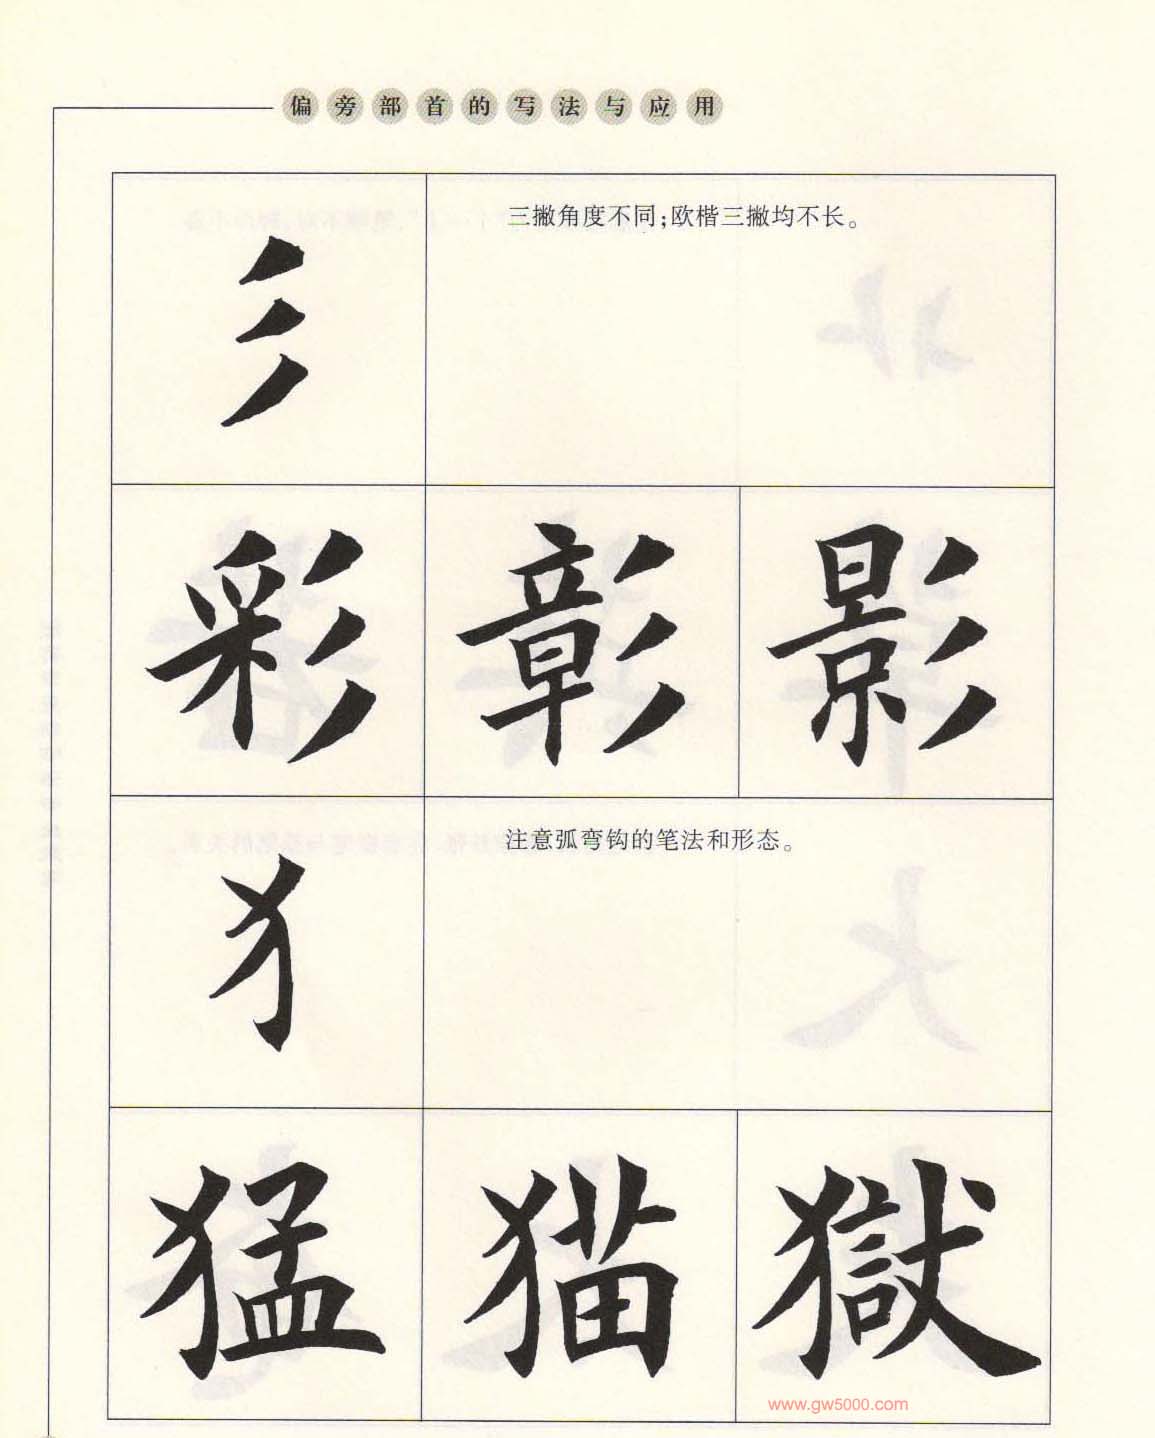 偏旁部首的写法与应用
彡
三撇角度不同；欧楷三撇均不长。
彩 彰 影
犭
注意弧弯钩的笔法和形态。
猛 猫 獄
www.gw5000.com